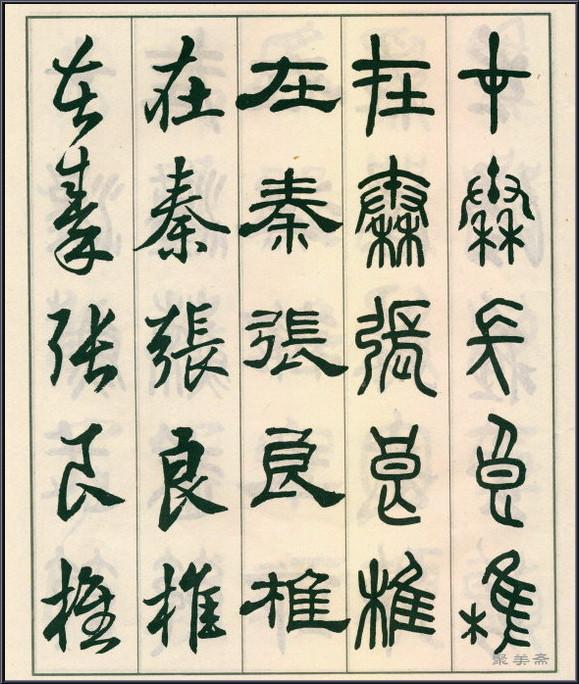 在秦張良椎
在秦張良椎
在秦張良椎
在秦張良椎
在秦張良椎
聚美斋